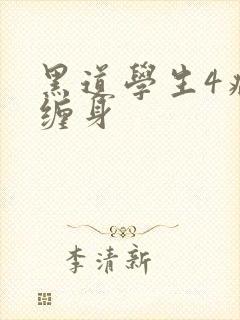 黑道學生4
缠身
李清新